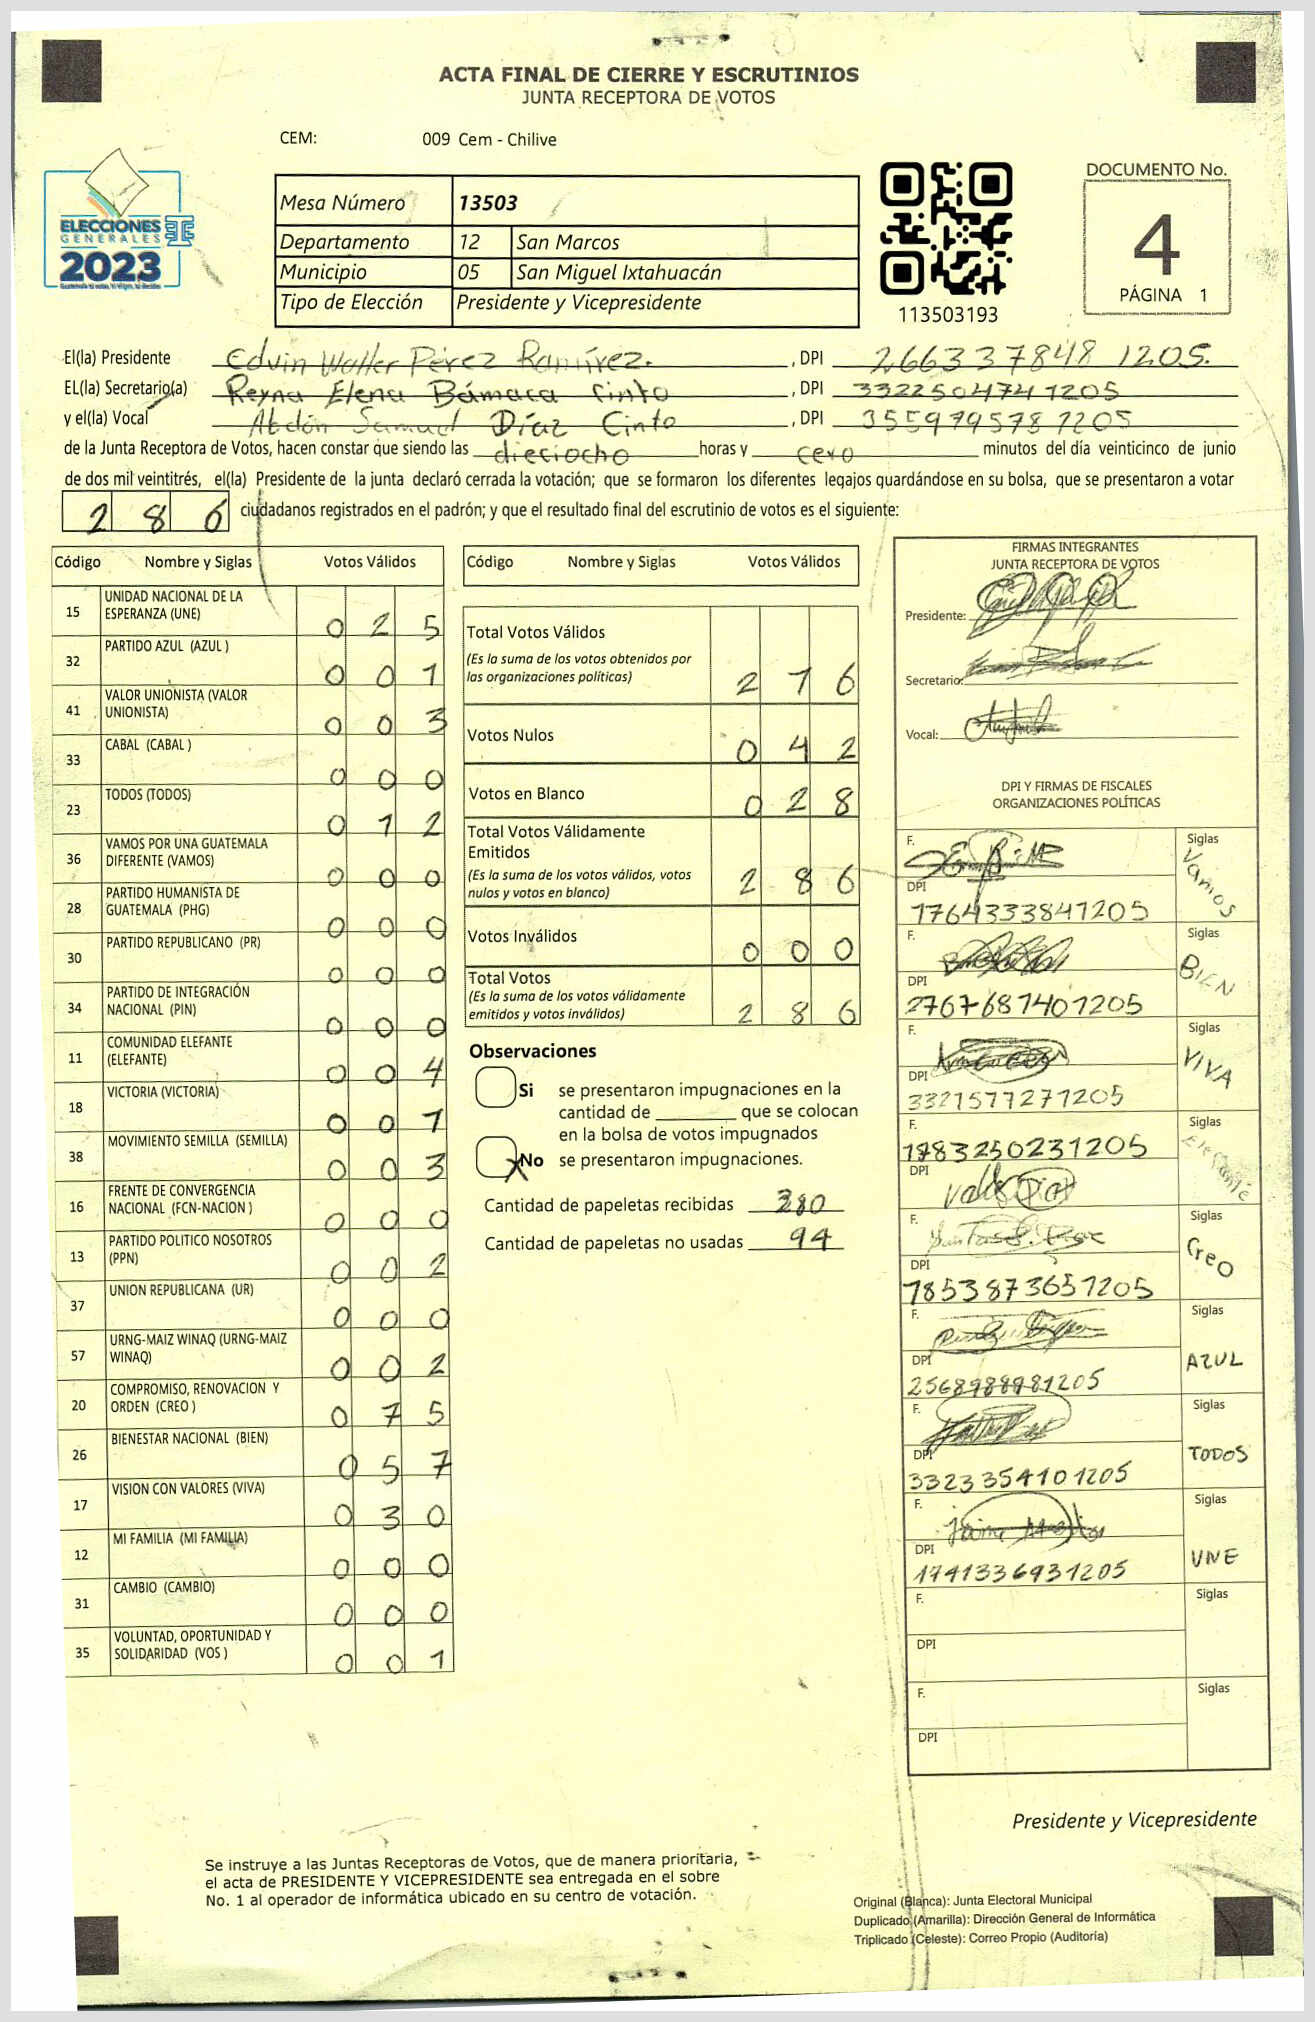 ACTA FINAL DE CIERRE Y ESCRUTINIOS
JUNTA RECEPTORA DE VOTOS
CEM: 009 Cem - Chilive
ELECCIONES
GENERALES
2023
Mesa Número 13503
Departamento 12 San Marcos
Municipio 05 San Miguel Ixtahuacán
Tipo de Elección Presidente y Vicepresidente
113503193
DOCUMENTO No.
4
PÁGINA 1
El(la) Presidente Edvin Walter Pérez Ramírez. , DPI 266337848 1205.
EL(la) Secretario(a) Reyna Elena Bámaca Cinto , DPI 3322504741205
y el(la) Vocal Abdón Samuel Díaz Cinto , DPI 3559795781205
de la Junta Receptora de Votos, hacen constar que siendo las dieciocho horas y cero minutos del día veinticinco de junio
de dos mil veintitrés, el(la) Presidente de la junta declaró cerrada la votación; que se formaron los diferentes legajos guardándose en su bolsa, que se presentaron a votar
286 ciudadanos registrados en el padrón; y que el resultado final del escrutinio de votos es el siguiente:
Código Nombre y Siglas Votos Válidos
15 UNIDAD NACIONAL DE LA
ESPERANZA (UNE) 0 2 5
32 PARTIDO AZUL (AZUL ) 0 0 1
41 VALOR UNIONISTA (VALOR
UNIONISTA) 0 0 3
33 CABAL (CABAL ) 0 0 0
23 TODOS (TODOS) 0 1 2
36 VAMOS POR UNA GUATEMALA
DIFERENTE (VAMOS) 0 0 0
28 PARTIDO HUMANISTA DE
GUATEMALA (PHG) 0 0 0
30 PARTIDO REPUBLICANO (PR) 0 0 0
34 PARTIDO DE INTEGRACIÓN
NACIONAL (PIN) 0 0 0
11 COMUNIDAD ELEFANTE
(ELEFANTE) 0 0 4
18 VICTORIA (VICTORIA) 0 0 1
38 MOVIMIENTO SEMILLA (SEMILLA) 0 0 3
16 FRENTE DE CONVERGENCIA
NACIONAL (FCN-NACION ) 0 0 0
13 PARTIDO POLITICO NOSOTROS
(PPN) 0 0 2
37 UNION REPUBLICANA (UR) 0 0 0
57 URNG-MAIZ WINAQ (URNG-MAIZ
WINAQ) 0 0 2
20 COMPROMISO, RENOVACION Y
ORDEN (CREO ) 0 7 5
26 BIENESTAR NACIONAL (BIEN) 0 5 7
17 VISION CON VALORES (VIVA) 0 3 0
12 MI FAMILIA (MI FAMILIA) 0 0 0
31 CAMBIO (CAMBIO) 0 0 0
35 VOLUNTAD, OPORTUNIDAD Y
SOLIDARIDAD (VOS ) 0 0 1
Código Nombre y Siglas Votos Válidos
Total Votos Válidos
(Es la suma de los votos obtenidos por
las organizaciones políticas) 2 1 6
Votos Nulos 0 4 2
Votos en Blanco 0 2 8
Total Votos Válidamente
Emitidos
(Es la suma de los votos válidos, votos
nulos y votos en blanco) 2 8 6
Votos Inválidos 0 0 0
Total Votos
(Es la suma de los votos válidamente
emitidos y votos inválidos) 2 8 6
Observaciones
Si se presentaron impugnaciones en la
cantidad de ________ que se colocan
en la bolsa de votos impugnados
X No se presentaron impugnaciones.
Cantidad de papeletas recibidas 380
Cantidad de papeletas no usadas 94
FIRMAS INTEGRANTES
JUNTA RECEPTORA DE VOTOS
Presidente:
Secretario:
Vocal:
DPI Y FIRMAS DE FISCALES
ORGANIZACIONES POLÍTICAS
F. Siglas Vamos
DPI 1764333841205
F. Siglas BIEN
DPI 2767681401205
F. Siglas VIVA
DPI 3321577271205
F. 1783250231205 Siglas Elefante
DPI
F. Siglas Creo
DPI 1853873651205
F. Siglas AZUL
DPI 2568988981205
F. Siglas TODOS
DPI 3323354101205
F. Siglas UNE
DPI 1741336931205
F. Siglas
DPI
F. Siglas
DPI
Presidente y Vicepresidente
Se instruye a las Juntas Receptoras de Votos, que de manera prioritaria,
el acta de PRESIDENTE Y VICEPRESIDENTE sea entregada en el sobre
No. 1 al operador de informática ubicado en su centro de votación.
Original (Blanca): Junta Electoral Municipal
Duplicado (Amarilla): Dirección General de Informática
Triplicado (Celeste): Correo Propio (Auditoría)